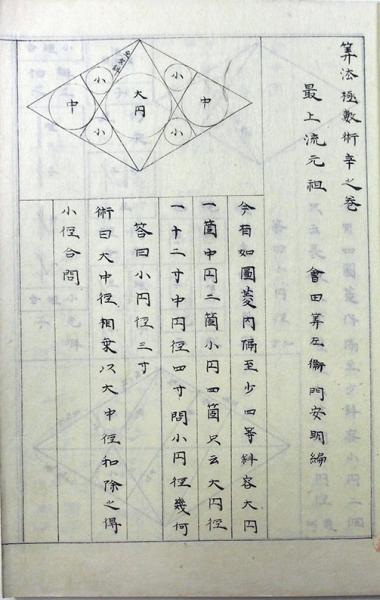 算法極數術辛之巻
最上流元祖 會田算左衞門安明編
今有如圖菱内隔至少四等斜容大円
一箇中円二箇小円四箇只云大円徑
一十二寸中円徑四寸問小円徑幾何
答曰小円徑三寸
術曰大中徑相乗以大中徑和除之得
小徑合問
小
小
中
大円
中
小
小